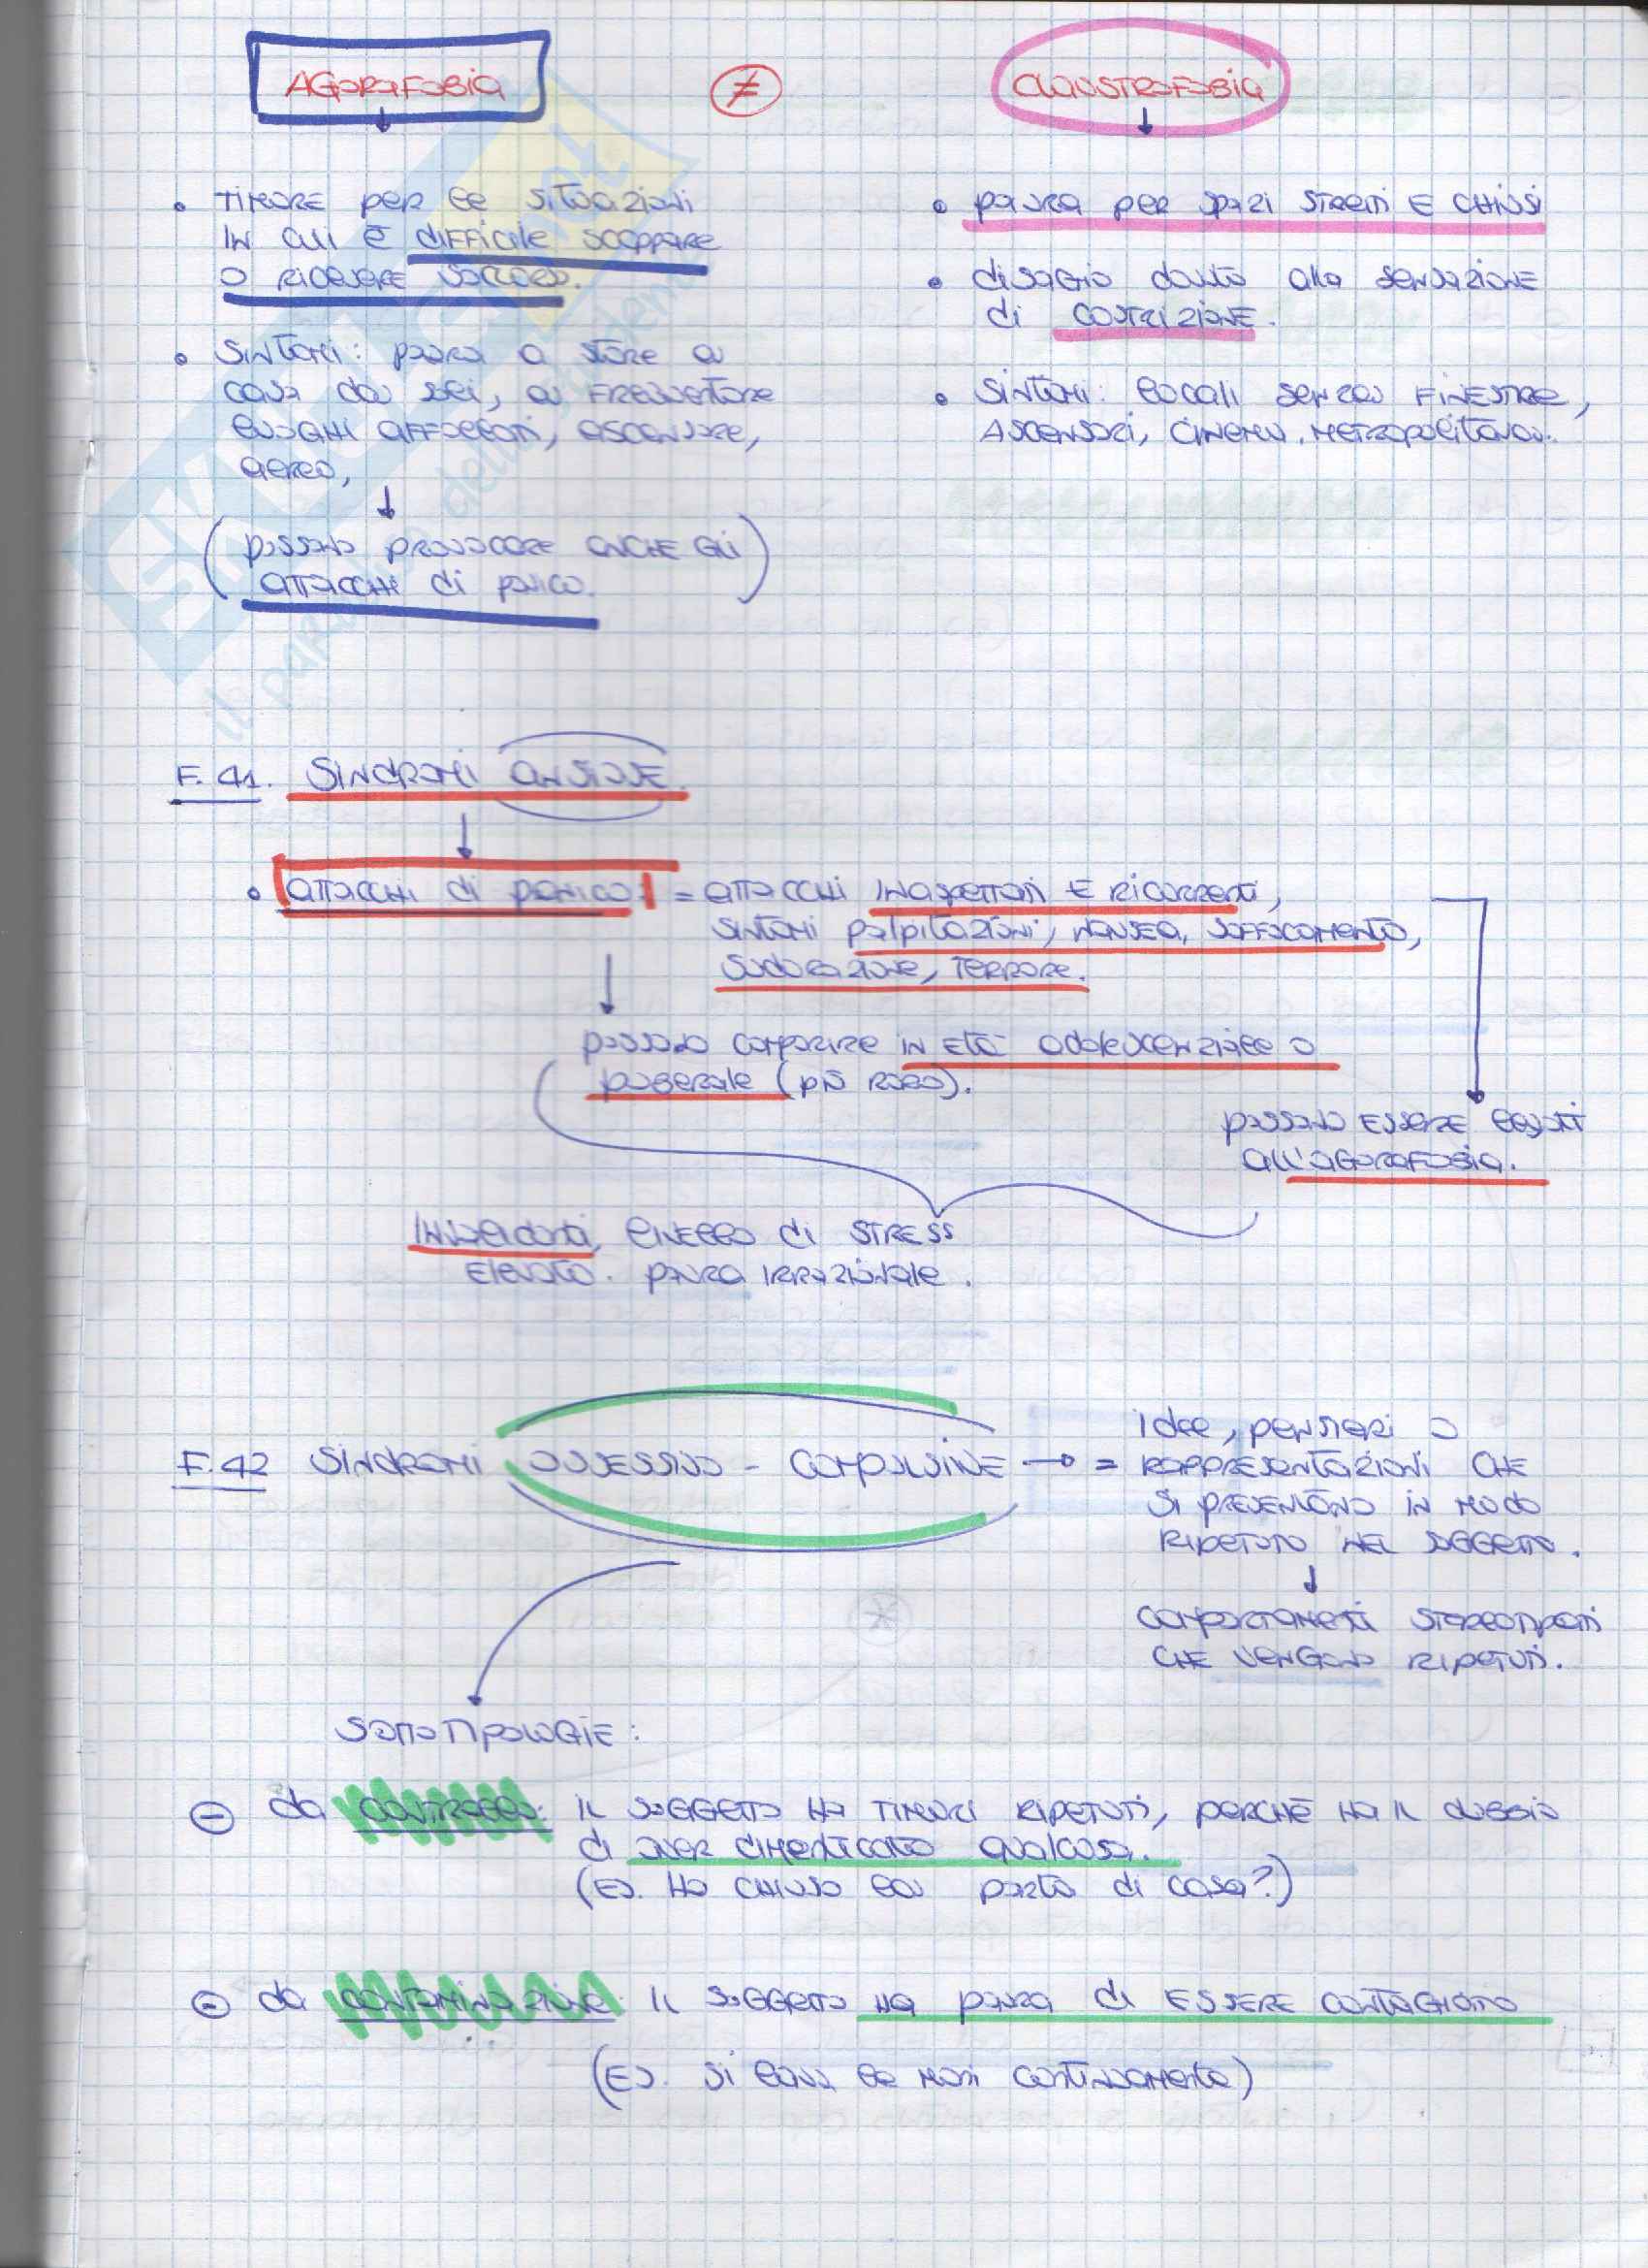 AGORAFOBIA ≠ CLAUSTROFOBIA
• TIMORE per le situazioni
in cui è difficile scappare
o ricevere soccorso.
• Sintomi: paura a stare a
casa da soli, a frequentare
luoghi affollati, ascensore,
aereo,
(possono provocare anche gli
attacchi di panico.)
• paura per spazi stretti e chiusi
• disagio dovuto alla sensazione
di costrizione.
• Sintomi: locali senza finestre,
ascensori, cinema, metropolitana.
F.41. Sindromi ansiose.
• attacchi di panico: = attacchi inaspettati e ricorrenti,
sintomi palpitazioni, nausea, soffocamento,
sudorazione, terrore.
possono comparire in età adolescenziale o
puberale (più raro).
possono essere legati
all'agorafobia.
Invalidanti, livello di stress
elevato. paura irrazionale.
F.42 Sindromi ossessivo - compulsive → = idee, pensieri o
rappresentazioni che
si presentano in modo
ripetuto nel soggetto.
comportamenti stereotipati
che vengono ripetuti.
Sottotipologie:
- da controllo: il soggetto ha timori ripetuti, perchè ha il dubbio
di aver dimenticato qualcosa.
(Es. Ho chiuso la porta di casa?)
- da contaminazione: il soggetto ha paura di essere contagiato
(Es. si lava le mani continuamente)